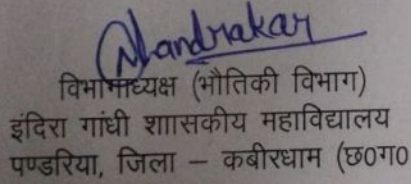 Chandrakar
विभागाध्यक्ष (भौतिकी विभाग)
इंदिरा गांधी शाासकीय महाविद्यालय
पण्डरिया, जिला – कबीरधाम (छ0ग0